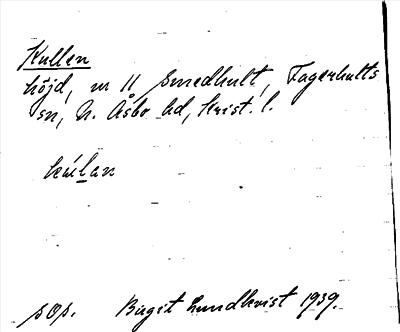 Kullen
höjd, m 11 Smedhult, Fagerhults
sn, N. Åsbo hd, Krist. l.
kúlan
sOs. Birgit Lundkvist 1939.